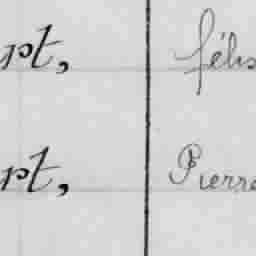 rt, félix
rt, Pierre